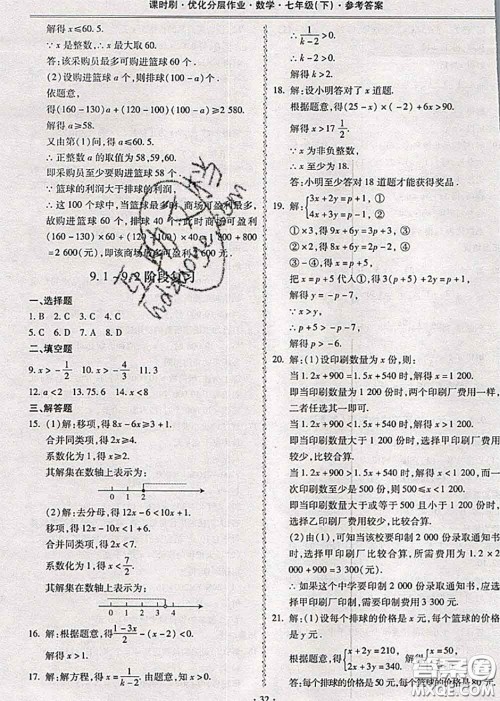 课时刷·优化分层作业·数学·七年级(下)·参考答案
解得 x≤60.5.
∵ x 为正整数,
答:该采购员最多可购进篮球 60 个.
(2)设购进篮球 a 个,则排球(100-a)个.
依题意,
得(160-130)a+(120-100)(100-a)≥2 580.
解得 a≥58.
又由第(1)问,得 a≤60.5.
∴ 正整数 a 的取值为 58,59,60.
即采购员至少要购进篮球 58 个.
∵ 篮球的利润大于排球的利润,
∴ 这 100 个球中,当篮球最多时,商场可盈利最多,
故购进篮球 60 个,排球 40 个,此时商场可盈利
=2 600(元),即该商场最多可盈利 2 600 元.
9.1~9.2 阶段复习
一、选择题
1. B 2. C
5. C 6. D 7. A 8. C
二、填空题
9. x>-1/2 10. x>-4/3 11. 3
12. a<2 13. 75.6 14. x<8
三、解答题
15. (1)解:移项,得 8x-6x≥3+1.
合并同类项,得 2x≥4.
系数化为 1,得 x≥2.
其解集在数轴上表示为:
0 1 2
(2)解:去分母,得 12x-6<10x+1.
移项,得 12x-10x<1+6.
合并同类项,得 2x<7.
系数化为 1,得
其解集在数轴上表示为:
0 1 2 3 4
16. 解:根据题意,得 (1-3x)/2-(-x)<0.
解得 x>1.
17. 解:解方程,得 x=1/(k-2). 根据题意,得 x>0,
∴ 1/(k-2)>0.
解得 k>2.
18. 解:设小明答对了 x 道题.
根据题意,得(25-x)×(-2)+6x>90.
解得 x>17 1/2.
∵ x 为非负整数,
∴ x 至少为 18.
答:小明至少答对 18 道题才能获得奖品.
19. 解:{3x+2y=p+1, ①
{4x+3y=p-1. ②
①×3,得 9x+6y=3p+3. ③
②×2,得 8x+6y=2p-2. ④
③-④,得 x=p+5.
把 x=p+5 代入①,得 3(p+5)+2y=p+1.
解得 y=-p-7.
∵ x>y,
∴ p+5>-p-7.
∴ p>-6.
20. 解:(1)设印刷数量为 x 份,则:
当 1.2x+900=1.5x+540 时,解得 x=1 200,
即当印刷数量为 1 200 份时,两个印刷厂费用一样,
二者任选其一即可.
当 1.2x+900<1.5x+540 时,解得 x>1 200,
即当印刷数量大于 1 200 份时,选择甲印刷厂费用较
少,比较合算.
当 1.2x+900>1.5x+540 时,解得 x<1 200,
因为至少是 500 份,所以 500≤x<1 200,
即当印刷数量大于或等于 500 且小于 1 200 份时,
选择乙印刷厂费用较少,比较合算.
(2)由(1)可知当该校要印制 2 000 份录取通知书时,
选择甲印刷厂比较合算. 所需要的费用为 1.2×2
000+900=3 300(元).
∴ 如果这个中学要印制 2 000 份录取通知书,应选
择甲印刷厂,需要费用 3 300 元.
21. 解:(1)设每个排球的价格为 x 元,每个篮球的价格
是 y 元.
根据题意,得{x+2y=210, 解得{x=50,
{2x+3y=340.
答:每个排球的价格是 50 元,每个篮球的价格是
·32·
答案圈
MXQE.COM